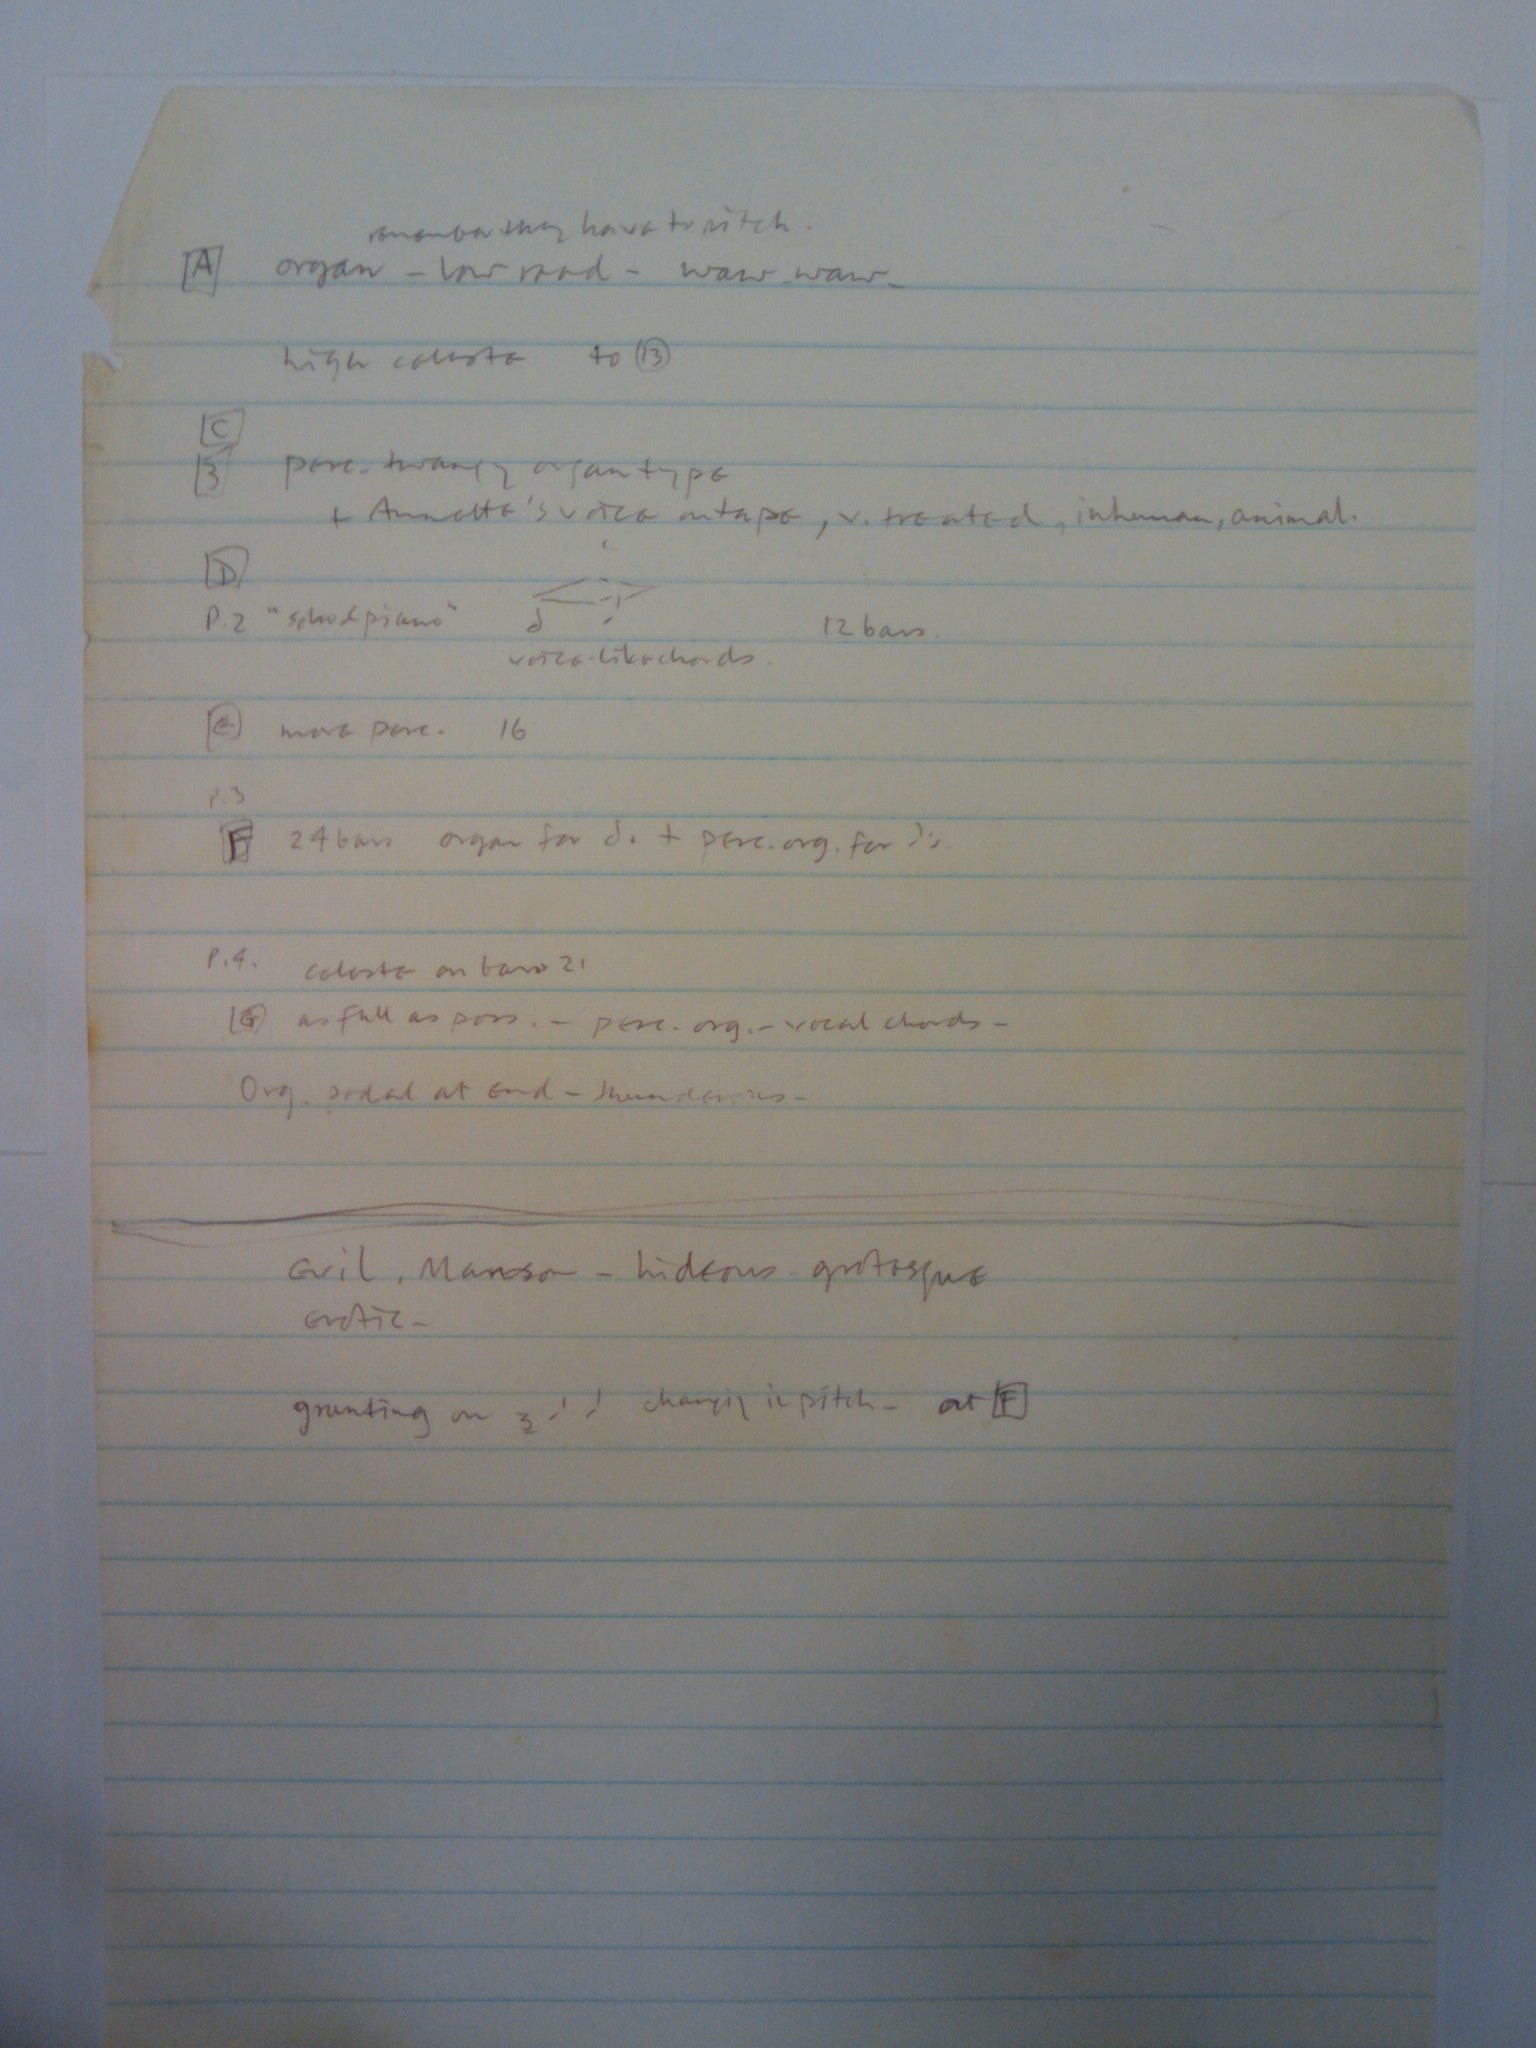 remember they have to pitch.
[A] organ - low reed - waw-waw-
high celesta to (13)
[C]
[B] perc. twangy organ type
+ Annette's voice on tape, v. treated, inhuman, animal.
[D]
P.2 "school piano" 12 bars.
voice-like chords.
[E] more perc. 16
P.3
[F] 24 bars organ for 𝅗𝅥. + perc. org. for ♩'s.
P.4. celesta on bars 21
[G] as full as poss. - perc. org. - vocal chords -
Org. pedal at end - thunderous -
Evil, Manson - hideous - grotesque
erotic -
grunting on changing in pitch - at [F]